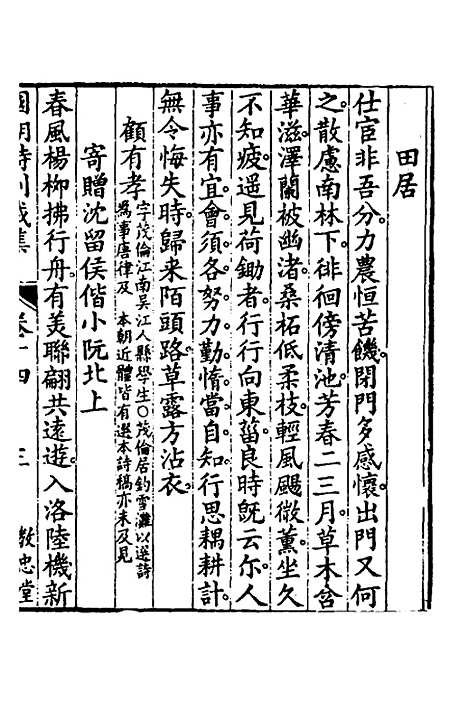 田居
仕宦非吾分。力農恒苦饑。閉門多感懷。出門又何
之。散慮南林下。徘徊傍清池。芳春二三月。草木含
華滋。澤蘭被幽渚。桑柘低柔枝。輕風颺微薰。坐久
不知疲。遥見荷鋤者。行行向東菑。良時旣云尔。人
事亦有宜。會須各努力。勤惰當自知。行思耦耕計。
無令悔失時。歸来陌頭路。草露方沾衣。
顧有孝字茂倫江南吳江人縣學生○茂倫居釣雪灘以選詩
爲事唐律及 本朝近體皆有選本詩稿亦未及見
寄贈沈留侯偕小阮北上
春風楊柳拂行舟。有美聯翩共遠遊。入洛陸機新
國朝詩別裁集 卷十四 三 教忠堂